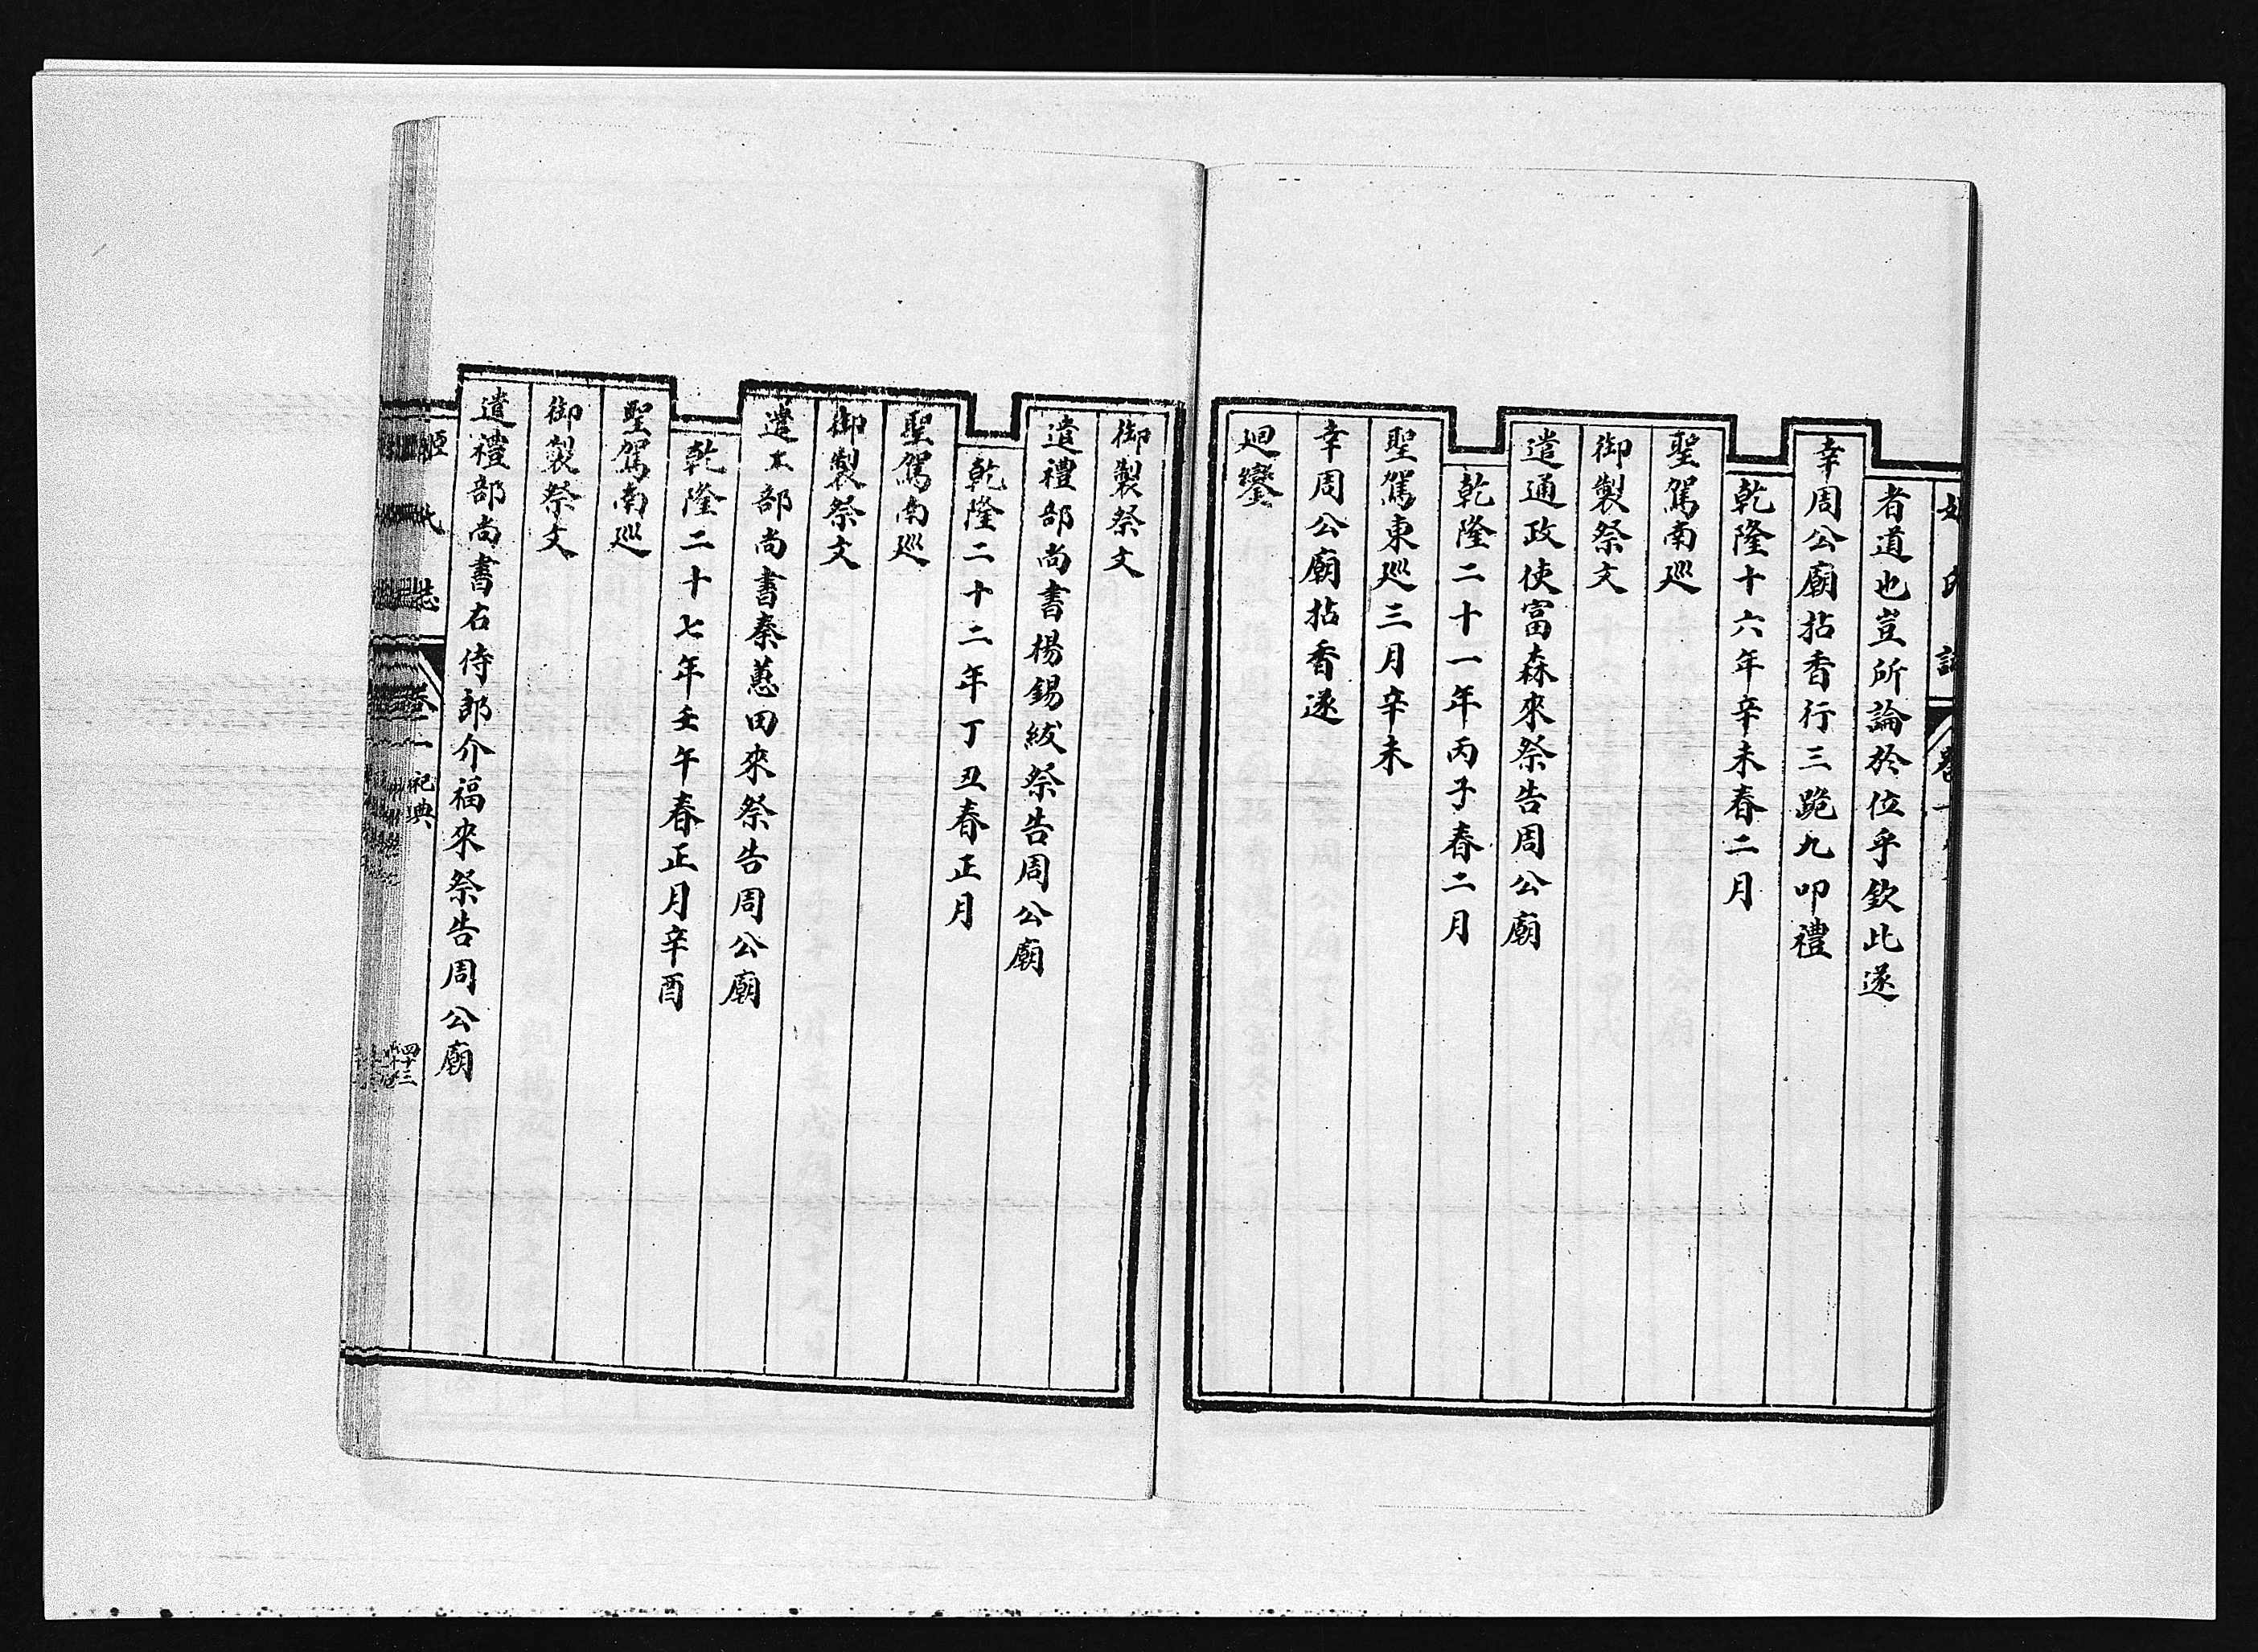 者道也豈所論於位乎欽此遂
幸周公廟拈香行三跪九叩禮
乾隆十六年辛未春二月
聖駕南巡
御製祭文
遣通政使富森來祭告周公廟
乾隆二十一年丙子春二月
聖駕東巡三月辛未
幸周公廟拈香遂
迴鑾
御製祭文
遣禮部尚書楊錫紱祭告周公廟
乾隆二十二年丁丑春正月
聖駕南巡
御製祭文
遣工部尚書秦蕙田來祭告周公廟
乾隆二十七年壬午春正月辛酉
聖駕南巡
御製祭文
遣禮部尚書右侍郎介福來祭告周公廟
姬氏志 卷二 祀典 四十三